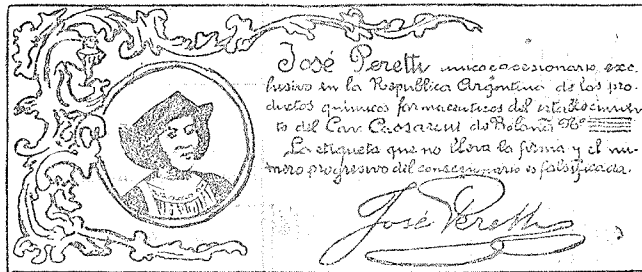 José Peretti unico concesionario exc
lusivo en la Republica Argentina de los pro-
ductos quimicos farmaceuticos del establecimien
to del Cav. de Nº
La etiqueta que no lleva la firma y el nu-
mero progresivo del concesionario es falsificada.
José Peretti